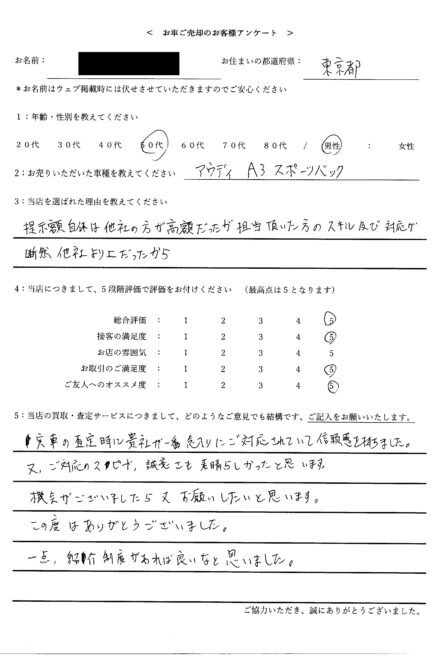 < お車ご売却のお客様アンケート >
お名前： お住まいの都道府県： 東京都
＊お名前はウェブ掲載時には伏せさせていただきますのでご安心ください
1：年齢・性別を教えてください
20代 30代 40代 50代 60代 70代 80代 / 男性 ： 女性
2：お売りいただいた車種を教えてください アウディ A3 スポーツバック
3：当店を選ばれた理由を教えてください
提示額自体は他社の方が高額だったが担当頂いた方のスキル及び対応が
断然他社より上だったから
4：当店につきまして、5段階評価で評価をお付けください （最高点は5となります）
総合評価 ： 1 2 3 4 5
接客の満足度 ： 1 2 3 4 5
お店の雰囲気 ： 1 2 3 4 5
お取引のご満足度 ： 1 2 3 4 5
ご友人へのオススメ度 ： 1 2 3 4 5
5：当店の買取・査定サービスにつきまして、どのようなご意見でも結構です、ご記入をお願いいたします。
実車の査定時に貴社が一番念入りにご対応されていて信頼感を持ちました。
又、ご対応のスピード、誠実さも素晴らしかったと思います。
機会がございましたら又お願いしたいと思います。
この度はありがとうございました。
一点、紹介制度があれば良いなと思いました。
ご協力いただき、誠にありがとうございました。